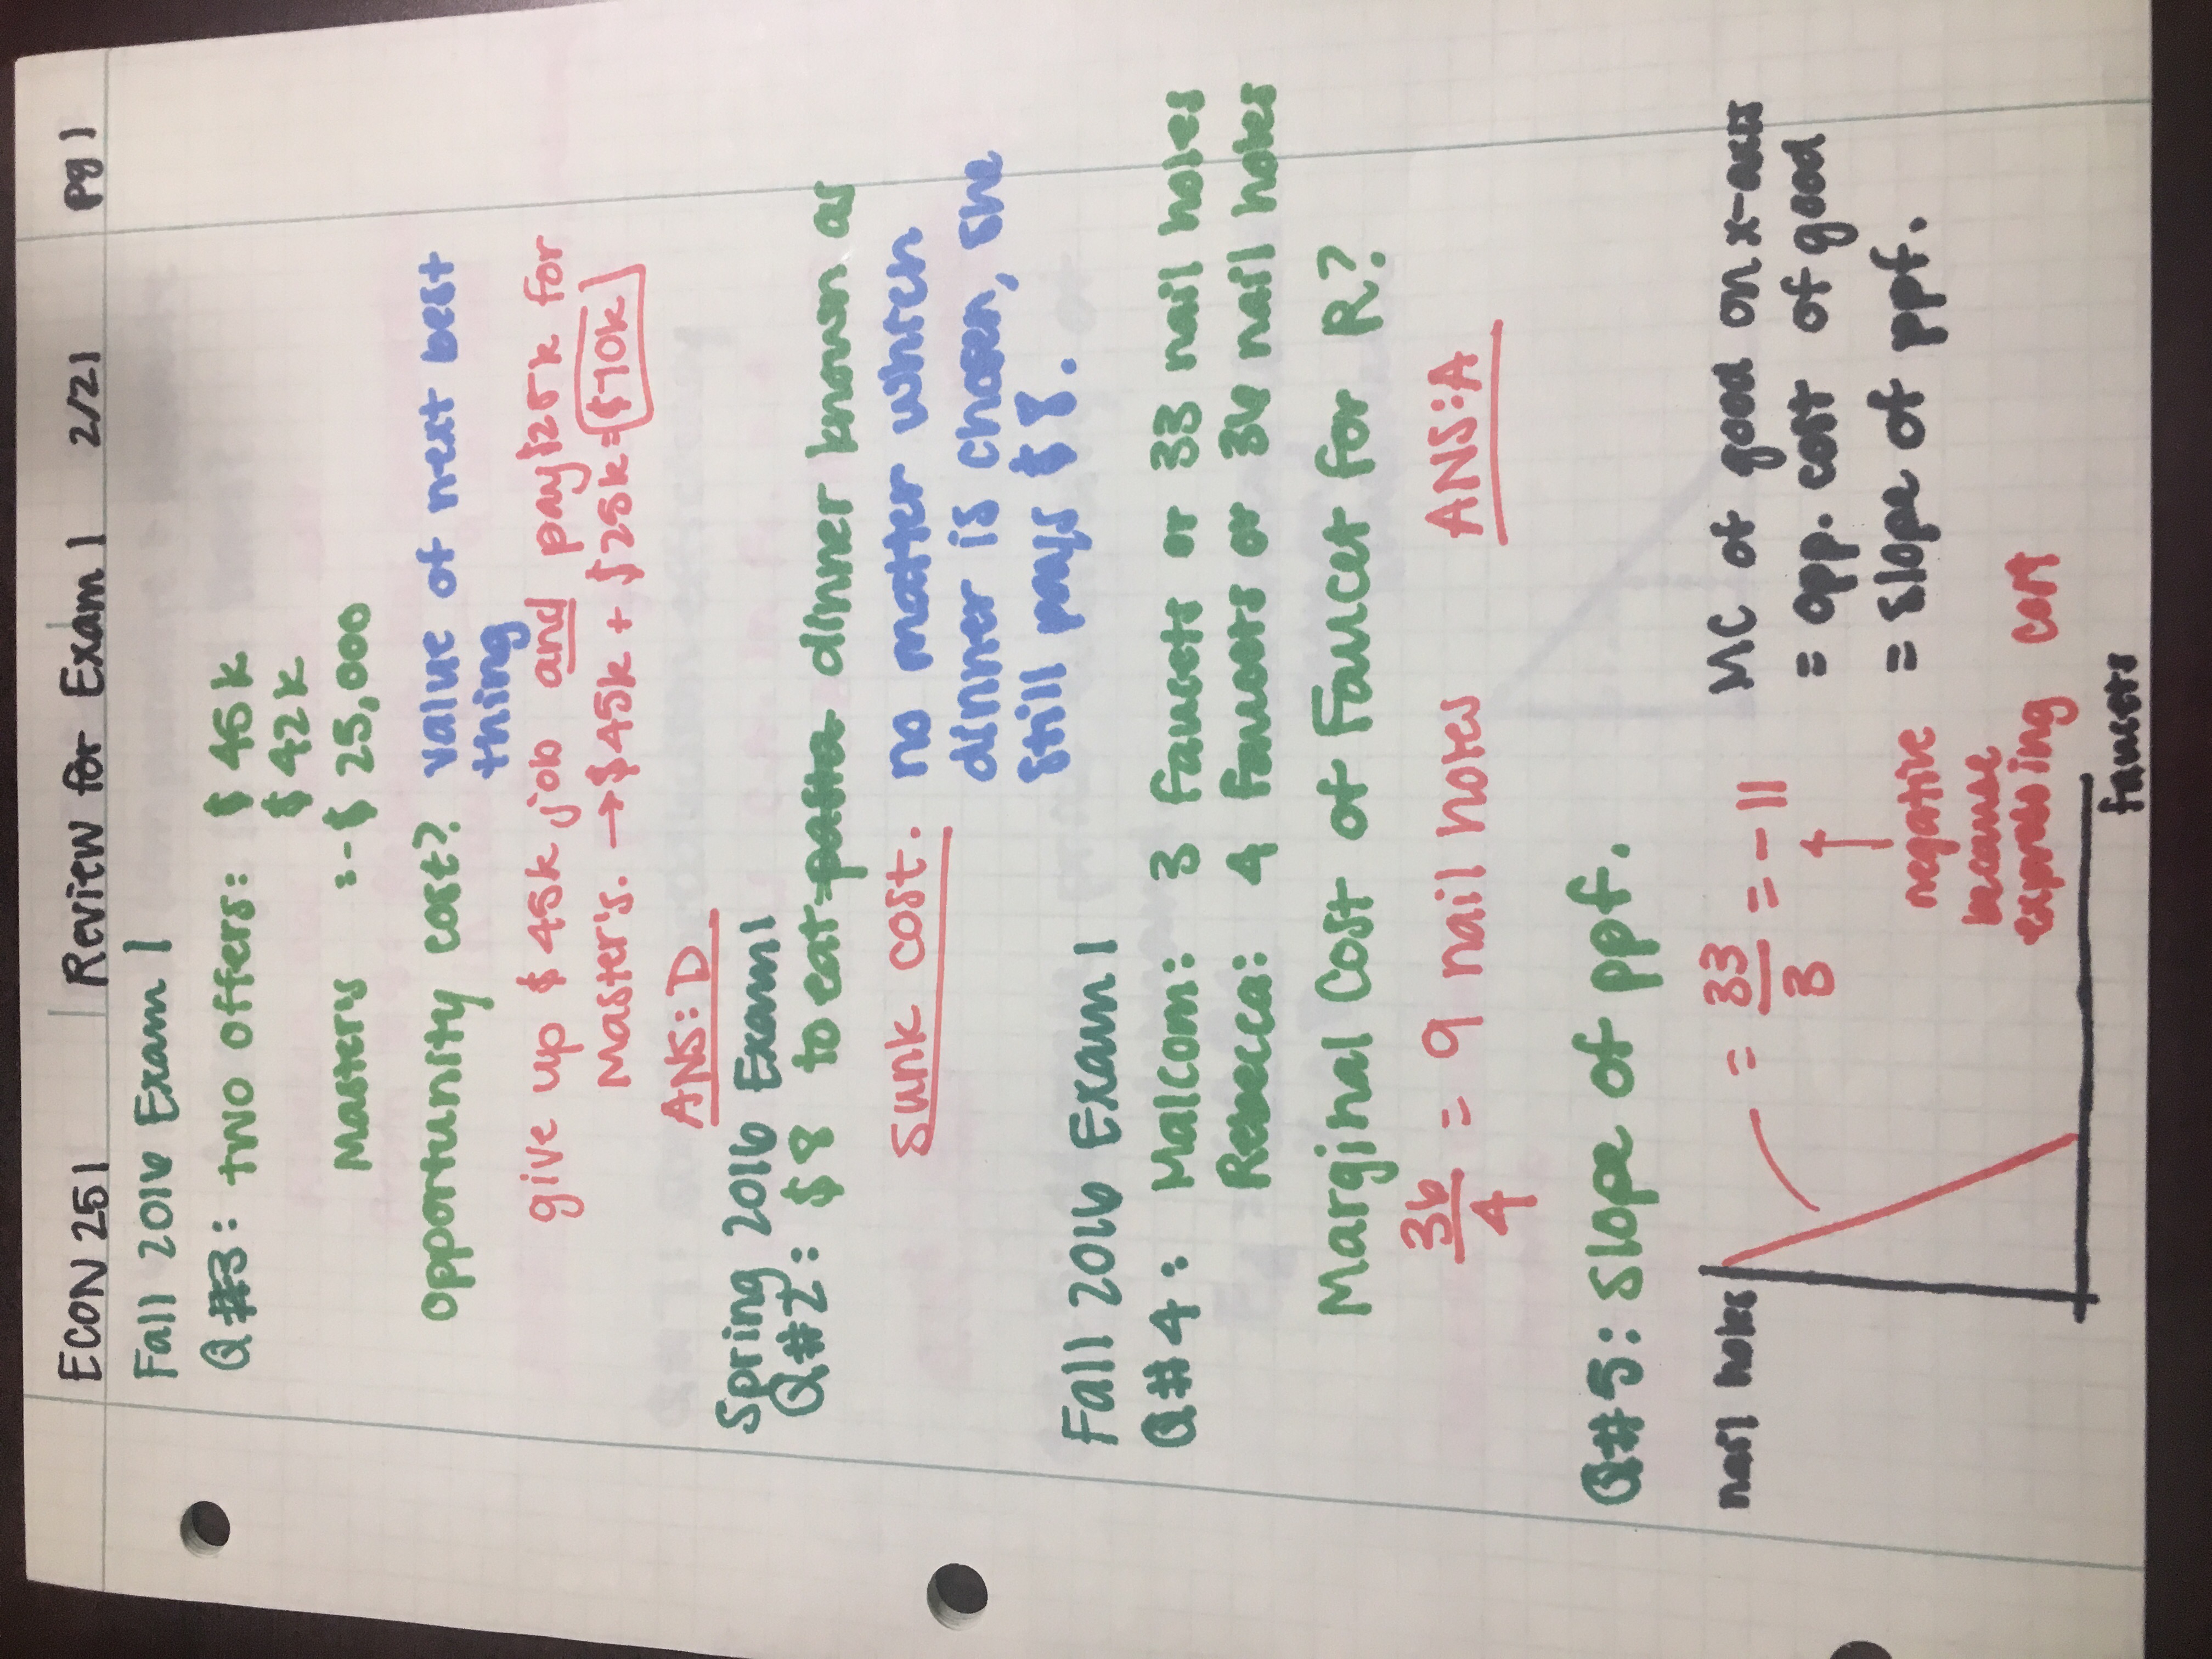 ECON 251 Review for Exam 1 2/21 pg 1
Fall 2016 Exam 1
Q#3: two offers: $ 45k
$ 42k
Master's :-$ 25,000
opportunity cost? value of next best
thing
give up $45k job and pay $25k for
Master's. → $45k + $25k = $70k
ANS: D
Spring 2016 Exam 1
Q#2: $8 to eat pasta dinner known as
sunk cost. no matter which
dinner is chosen, she
still pays $8.
Fall 2016 Exam 1
Q#4: Malcom: 3 faucets or 33 nail holes
Rebecca: 4 faucets or 36 nail holes
Marginal Cost of Faucet for R?
36/4 = 9 nail holes ANS: A
Q#5: slope of ppf.
nail holes = 33/3 = -11 MC of good on x-axis
= opp. cost of good
= slope of ppf.
negative
because
expressing cost
faucets